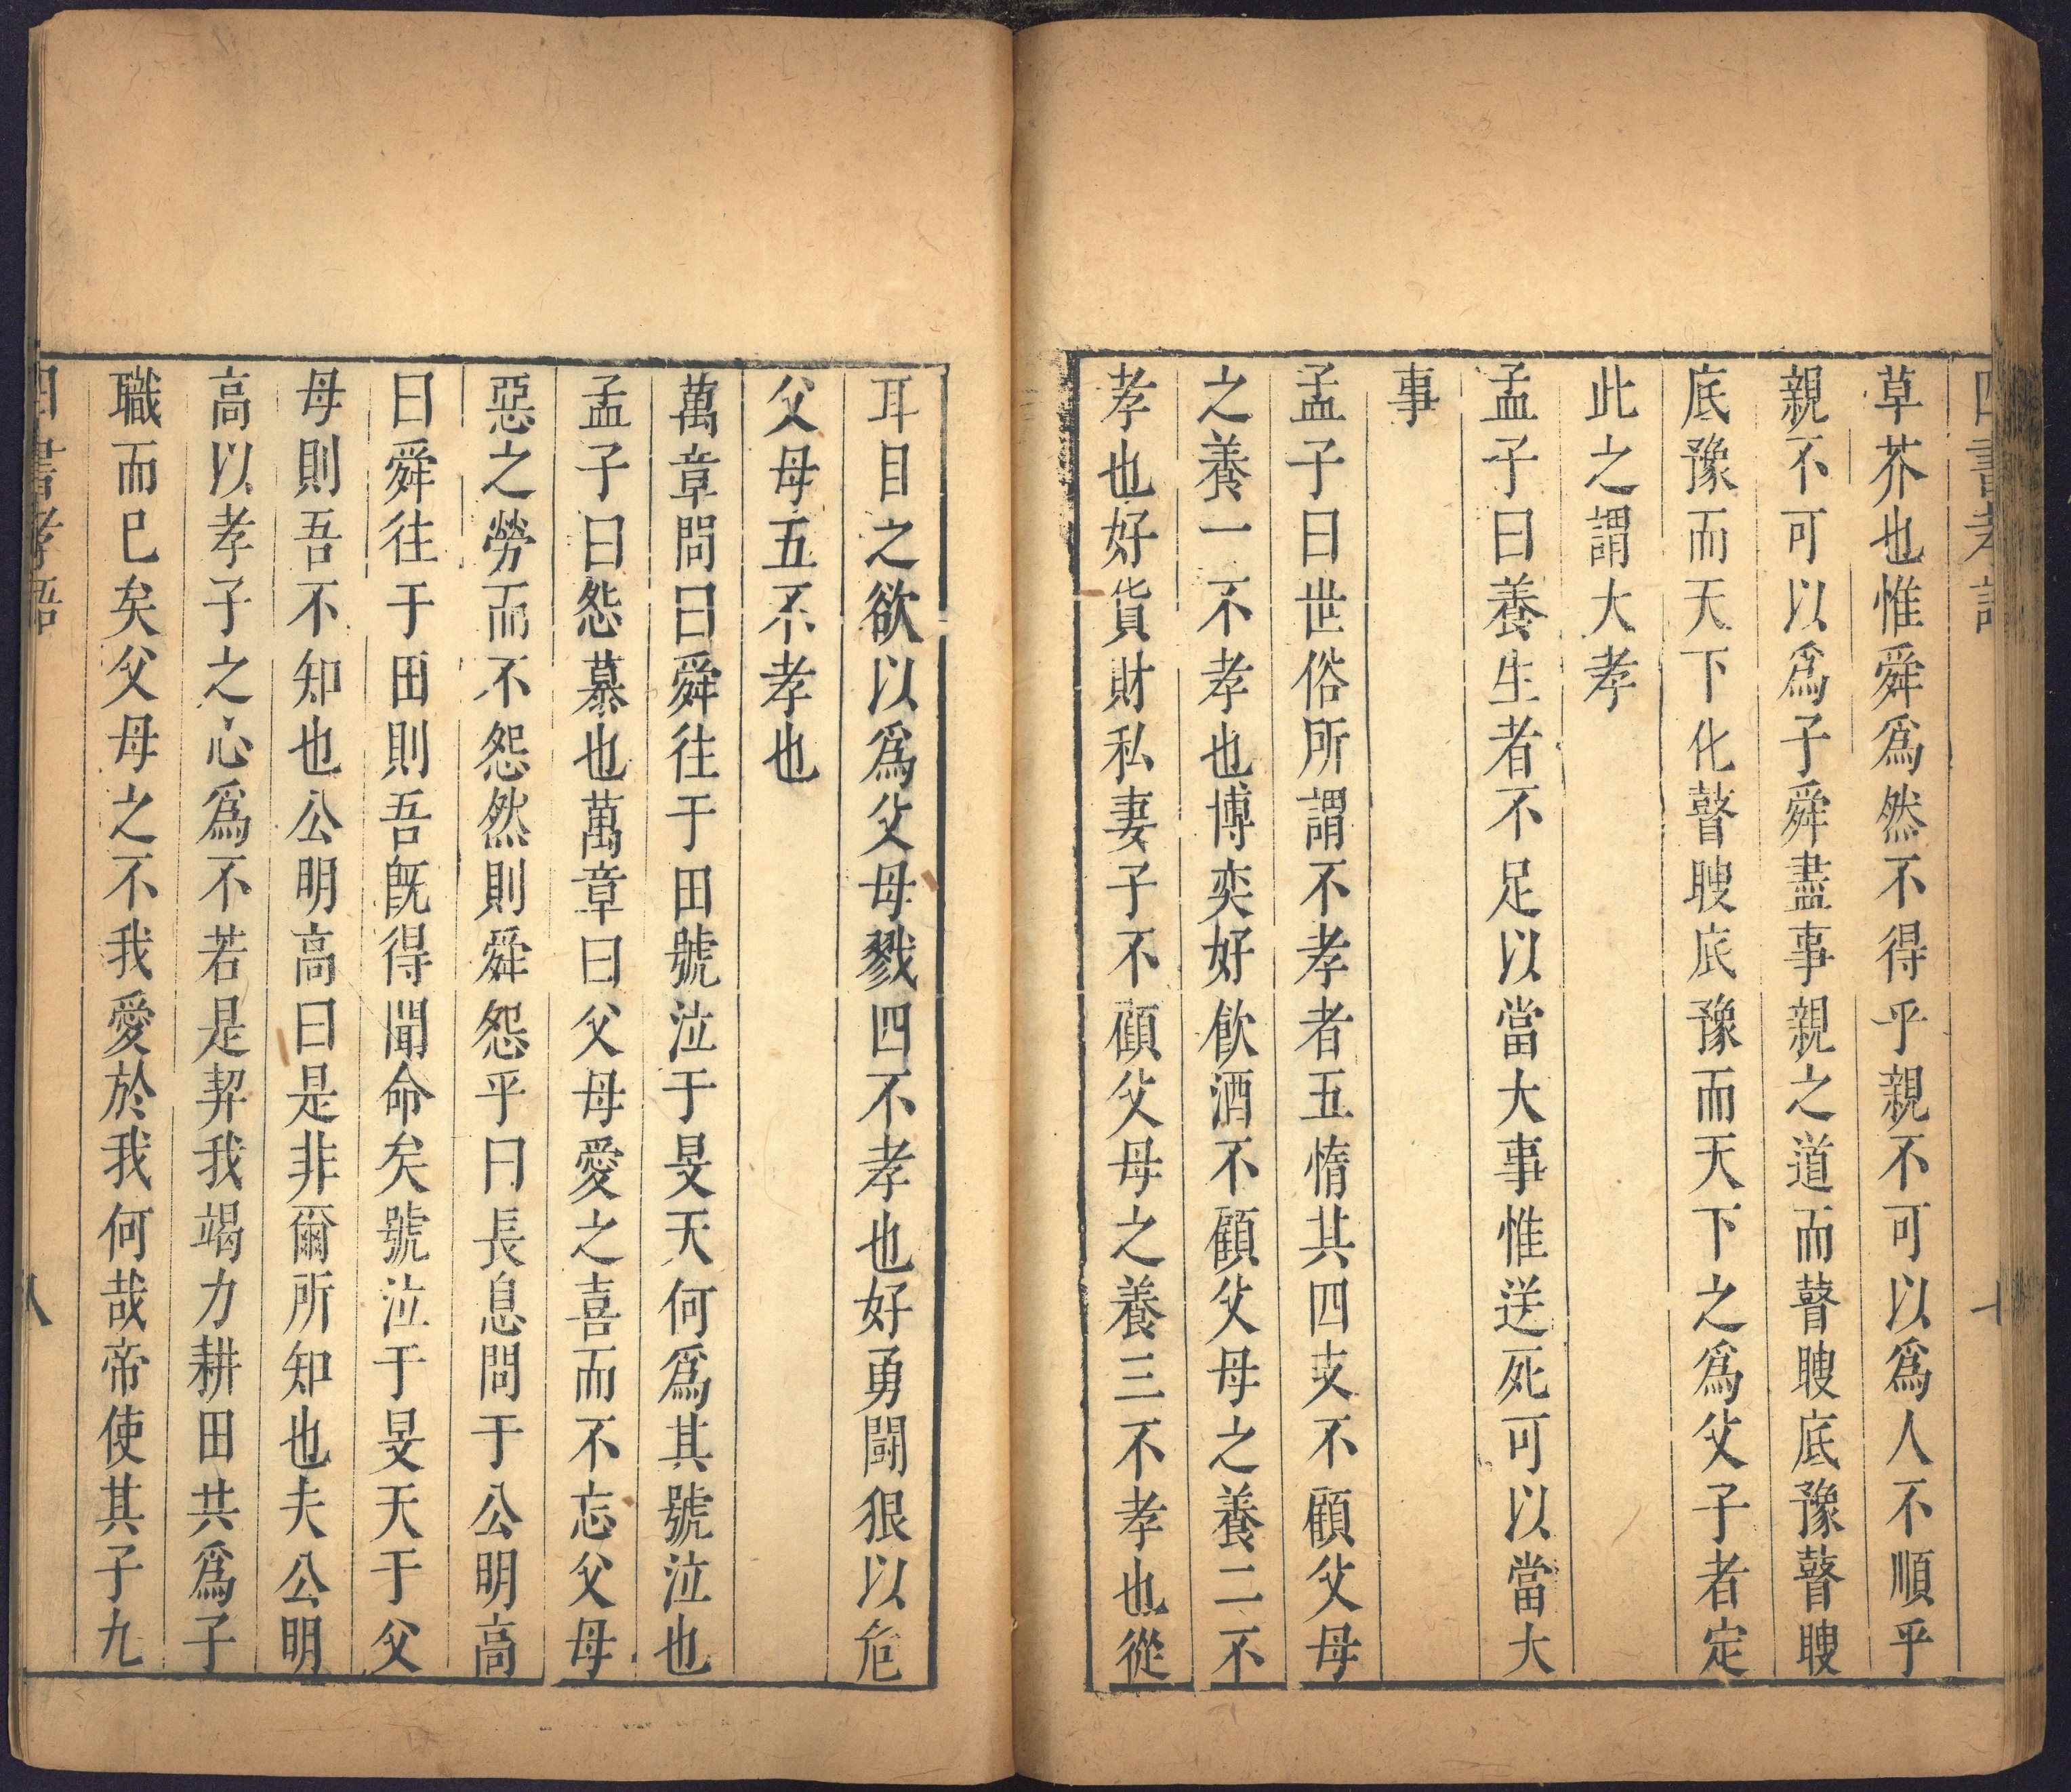 四書孝語
草芥也惟舜爲然不得乎親不可以爲人不順乎
親不可以爲子舜盡事親之道而瞽瞍底豫瞽瞍
底豫而天下化瞽瞍底豫而天下之爲父子者定
此之謂大孝
孟子曰養生者不足以當大事惟送死可以當大
事
孟子曰世俗所謂不孝者五惰其四支不顧父母
之養一不孝也博奕好飲酒不顧父母之養二不
孝也好貨財私妻子不顧父母之養三不孝也從
耳目之欲以爲父母戮四不孝也好勇鬭狠以危
父母五不孝也
萬章問曰舜往于田號泣于旻天何爲其號泣也
孟子曰怨慕也萬章曰父母愛之喜而不忘父母
惡之勞而不怨然則舜怨乎曰長息問于公明高
曰舜往于田則吾旣得聞命矣號泣于旻天于父
母則吾不知也公明高曰是非爾所知也夫公明
高以孝子之心爲不若是恝我竭力耕田共爲子
職而已矣父母之不我愛於我何哉帝使其子九
四書孝語 八